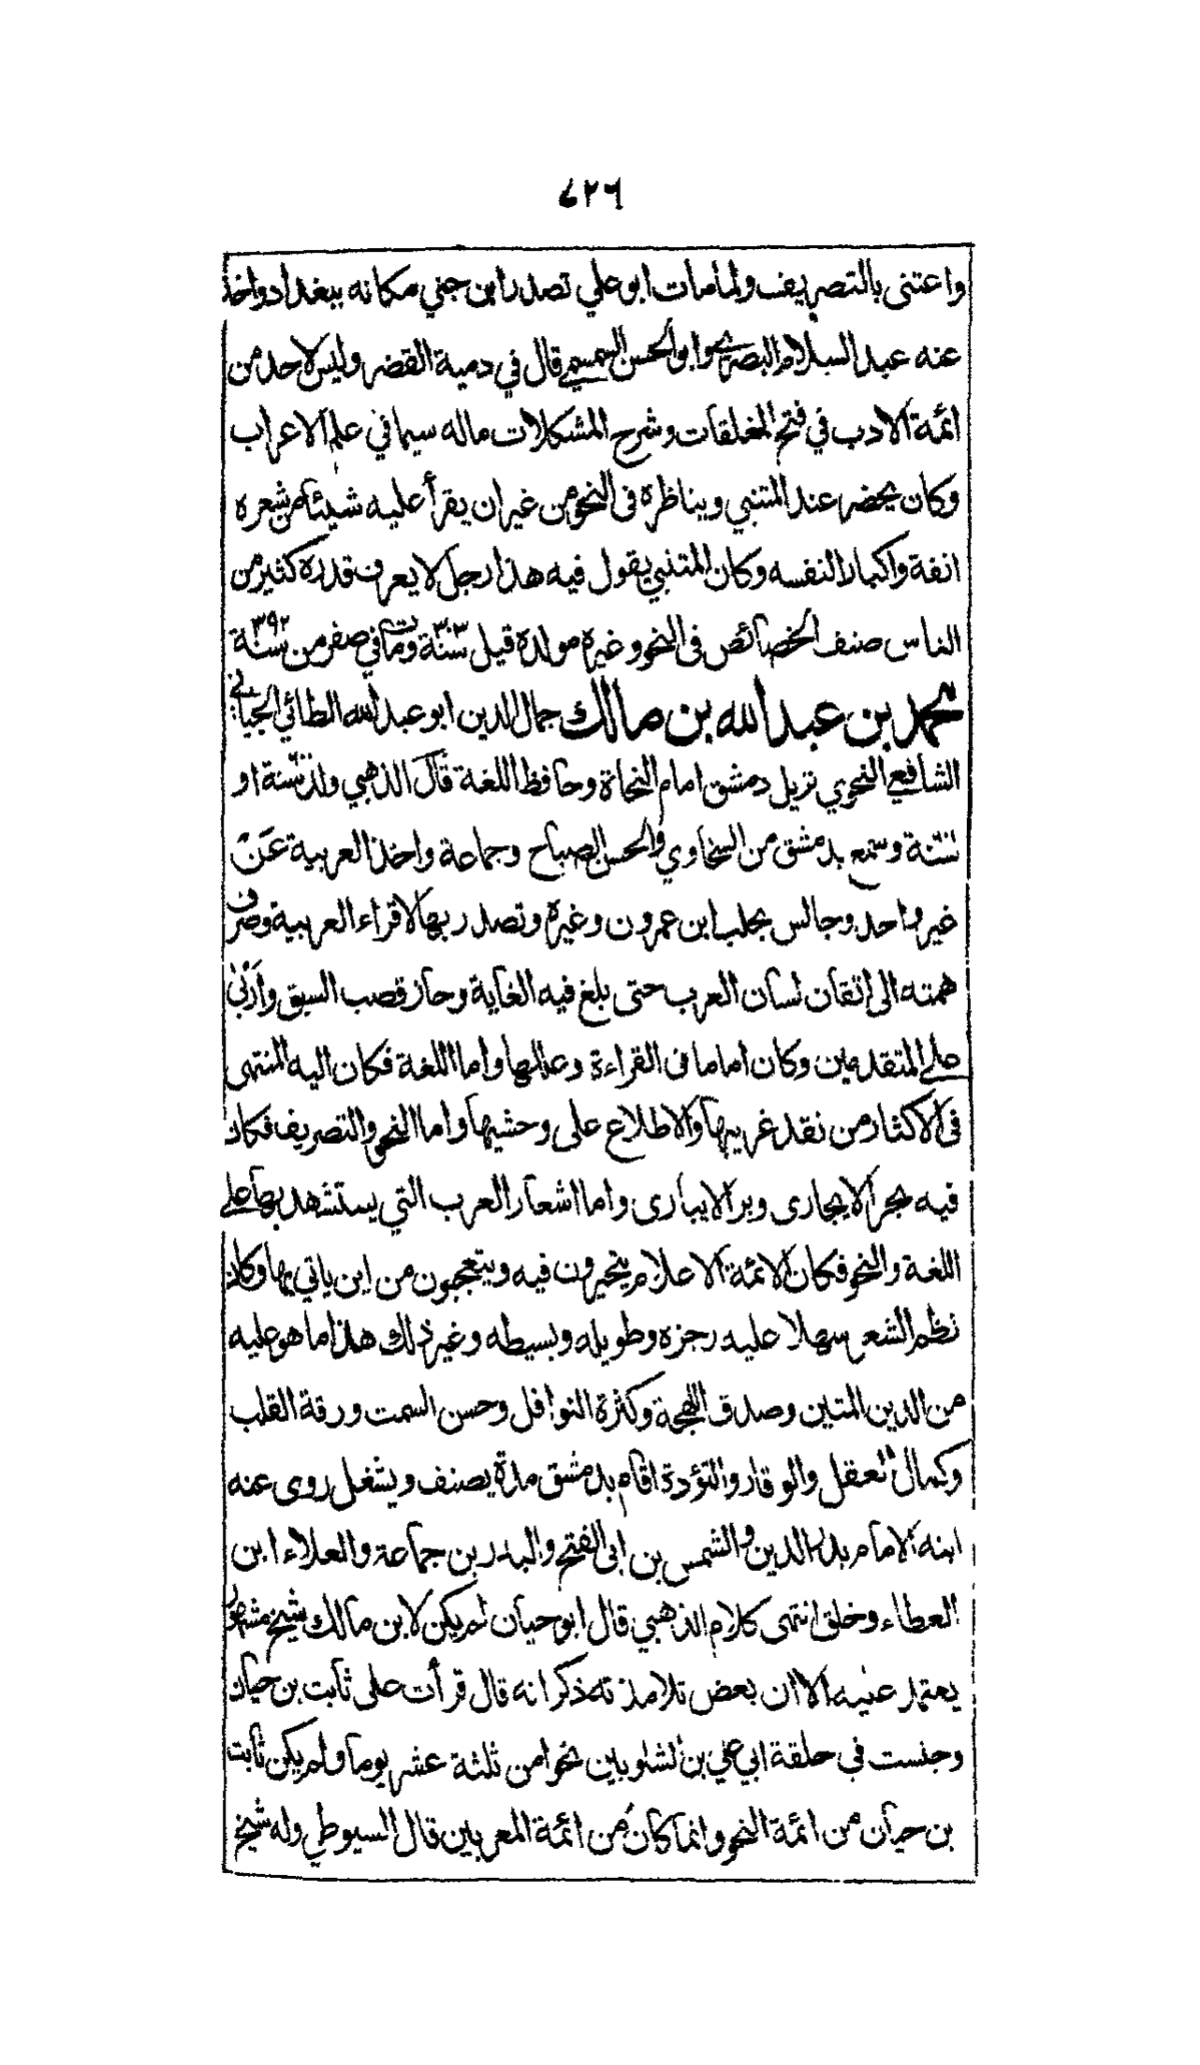 ٧٢٦
واعتنى بالتصريف ولمامات ابوعلي تصدر ابن جني مكانه ببغداد واخذ
عنه عبد السلام البصري وابو الحسن السمسمي قال في دمية القصر وليس لاحد من
ائمة الادب في فتح المغلقات وشرح المشكلات ماله سيما في علم الاعراب
وكان يحضر عند المتنبي ويناظره فى النحو من غير ان يقرأ عليه شيئا من شعره
انفة واكبارا لنفسه وكان المتنبي يقول فيه هذا رجل لا يعرف قدره كثير من
الناس صنف الخصائص فى النحو وغيره مولده قيل سنة ٣٠٣ ومات في صفر من سنة ٣٩٢
محمد بن عبد الله بن مالك جمال الدين ابو عبد الله الطائي الجياني
الشافعي النحوي نزيل دمشق امام النحاة وحافظ اللغة قال الذهبي ولد سنة او
سنة وسمع بدمشق من السخاوي والحسن الصباح وجماعة واخذ العربية عن
غير واحد وجالس بحلب ابن عمرون وغيره وتصدر بها لاقراء العربية وصرف
همته الى اتقان لسان العرب حتى بلغ فيه الغاية وحاز قصب السبق وأربى
على المتقدمين وكان اماما فى القراءة وعللها واما اللغة فكان اليه المنتهى
فى الاكثار من نقد غريبها والاطلاع على وحشيها واما النحو والتصريف فكان
فيه بحرا لا يجارى وبرا لا يبارى واما اشعار العرب التي يستشهد بها على
اللغة والنحو فكان الائمة الاعلام يتحيرون فيه ويتعجبون من اين ياتي بها وكان
نظم الشعر سهلا عليه رجزه وطويله وبسيطه وغير ذلك هذا ما هو عليه
من الدين المتين وصدق اللهجة وكثرة النوافل وحسن السمت ورقة القلب
وكمال العقل والوقار والتؤدة اقام بدمشق مدة يصنف ويشغل روى عنه
ابنه الامام بدر الدين والشمس بن ابى الفتح والبدر بن جماعة والعلاء ابن
العطاء وخلق انتهى كلام الذهبي قال ابو حيان لم يكن لابن مالك شيخ مشهور
يعتمد عليه الا ان بعض تلامذته ذكر انه قال قرأت على ثابت بن حيان
وجلست في حلقة ابي علي بن الشلوبين نحوا من ثلثة عشر يوما ولم يكن ثابت
بن حيان من ائمة النحو وانما كان من ائمة المعربين قال السيوطي وله شيخ